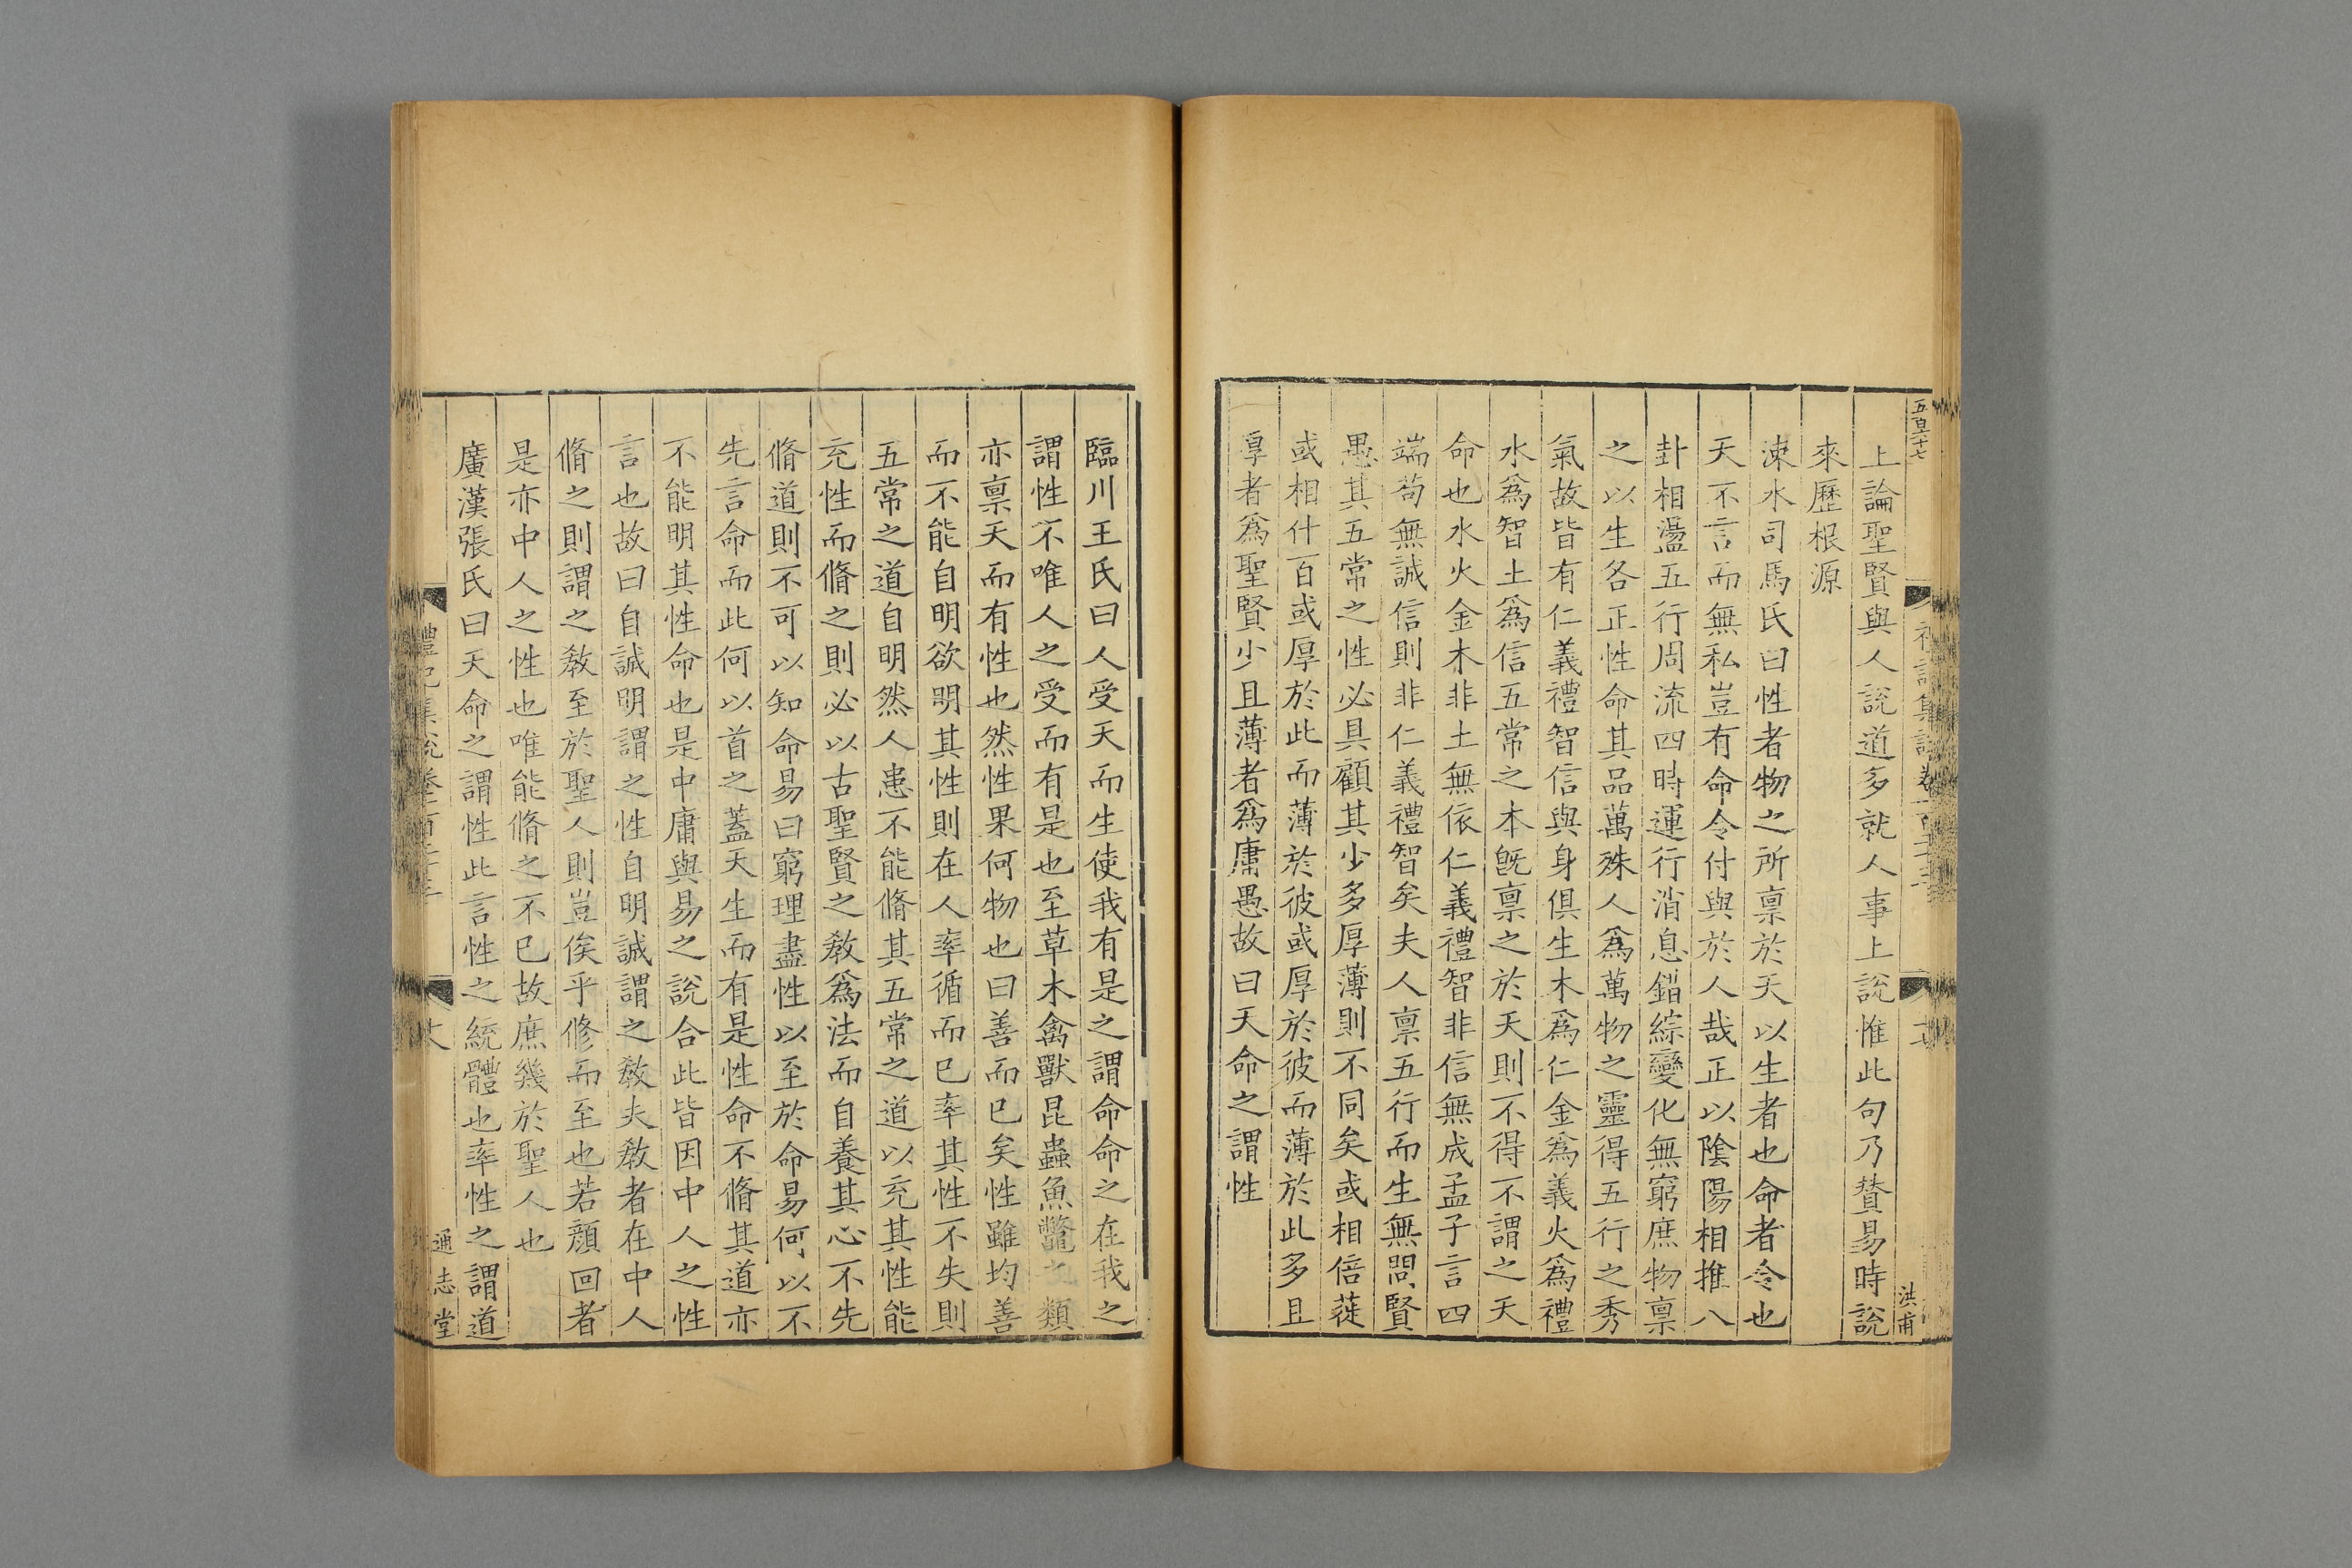 上論聖賢與人說道多就人事上說惟此句乃贊易時說
來歷根源
涑水司馬氏曰性者物之所禀於天以生者也命者令也
天不言而無私豈有命令付與於人哉正以陰陽相推八
卦相盪五行周流四時運行消息錯綜變化無窮庶物禀
之以生各正性命其品萬殊人爲萬物之靈得五行之秀
氣故皆有仁義禮智信與身俱生木爲仁金爲義火爲禮
水爲智土爲信五常之本旣禀之於天則不得不謂之天
命也水火金木非土無依仁義禮智非信無成孟子言四
端苟無誠信則非仁義禮智矣夫人禀五行而生無問賢
愚其五常之性必具顧其少多厚薄則不同矣或相倍蓰
或相什百或厚於此而薄於彼或厚於彼而薄於此多且
厚者爲聖賢少且薄者爲庸愚故曰天命之謂性
洪甫
臨川王氏曰人受天而生使我有是之謂命命之在我之
謂性不唯人之受而有是也至草木禽獸昆蟲魚鼈之類
亦禀天而有性也然性果何物也曰善而已矣性雖均善
而不能自明欲明其性則在人率循而已率其性不失則
五常之道自明然人患不能脩其五常之道以充其性能
充性而脩之則必以古聖賢之敎爲法而自養其心不先
脩道則不可以知命易曰窮理盡性以至於命易何以不
先言命而此何以首之蓋天生而有是性命不脩其道亦
不能明其性命也是中庸與易之說合此皆因中人之性
言也故曰自誠明謂之性自明誠謂之敎夫敎者在中人
脩之則謂之敎至於聖人則豈俟乎修而至也若顔回者
是亦中人之性也唯能脩之不已故庶幾於聖人也
廣漢張氏曰天命之謂性此言性之統體也率性之謂道
通志堂